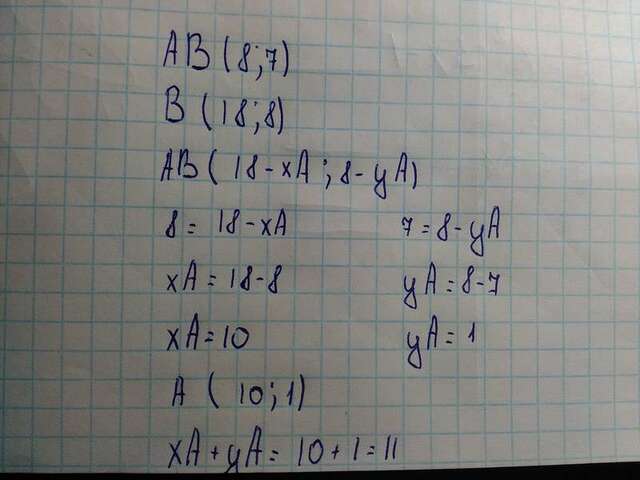 AB (8;7)
B (18;8)
AB ( 18-xA ; 8-yA)
8= 18-xA 7=8-yA
xA=18-8 yA=8-7
xA=10 yA=1
A ( 10;1)
xA+yA= 10+1=11